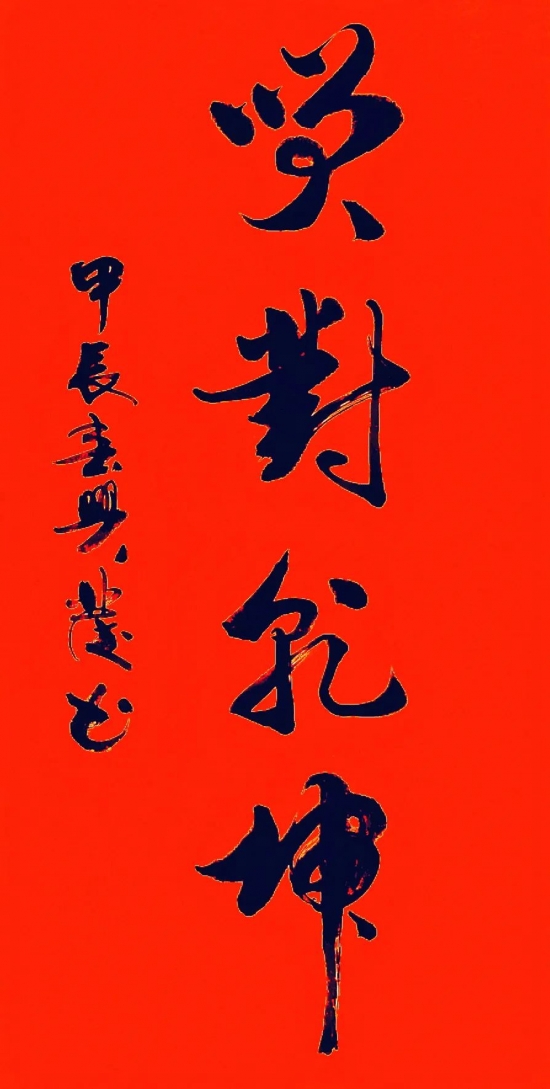 笑對乾坤
甲辰春興书